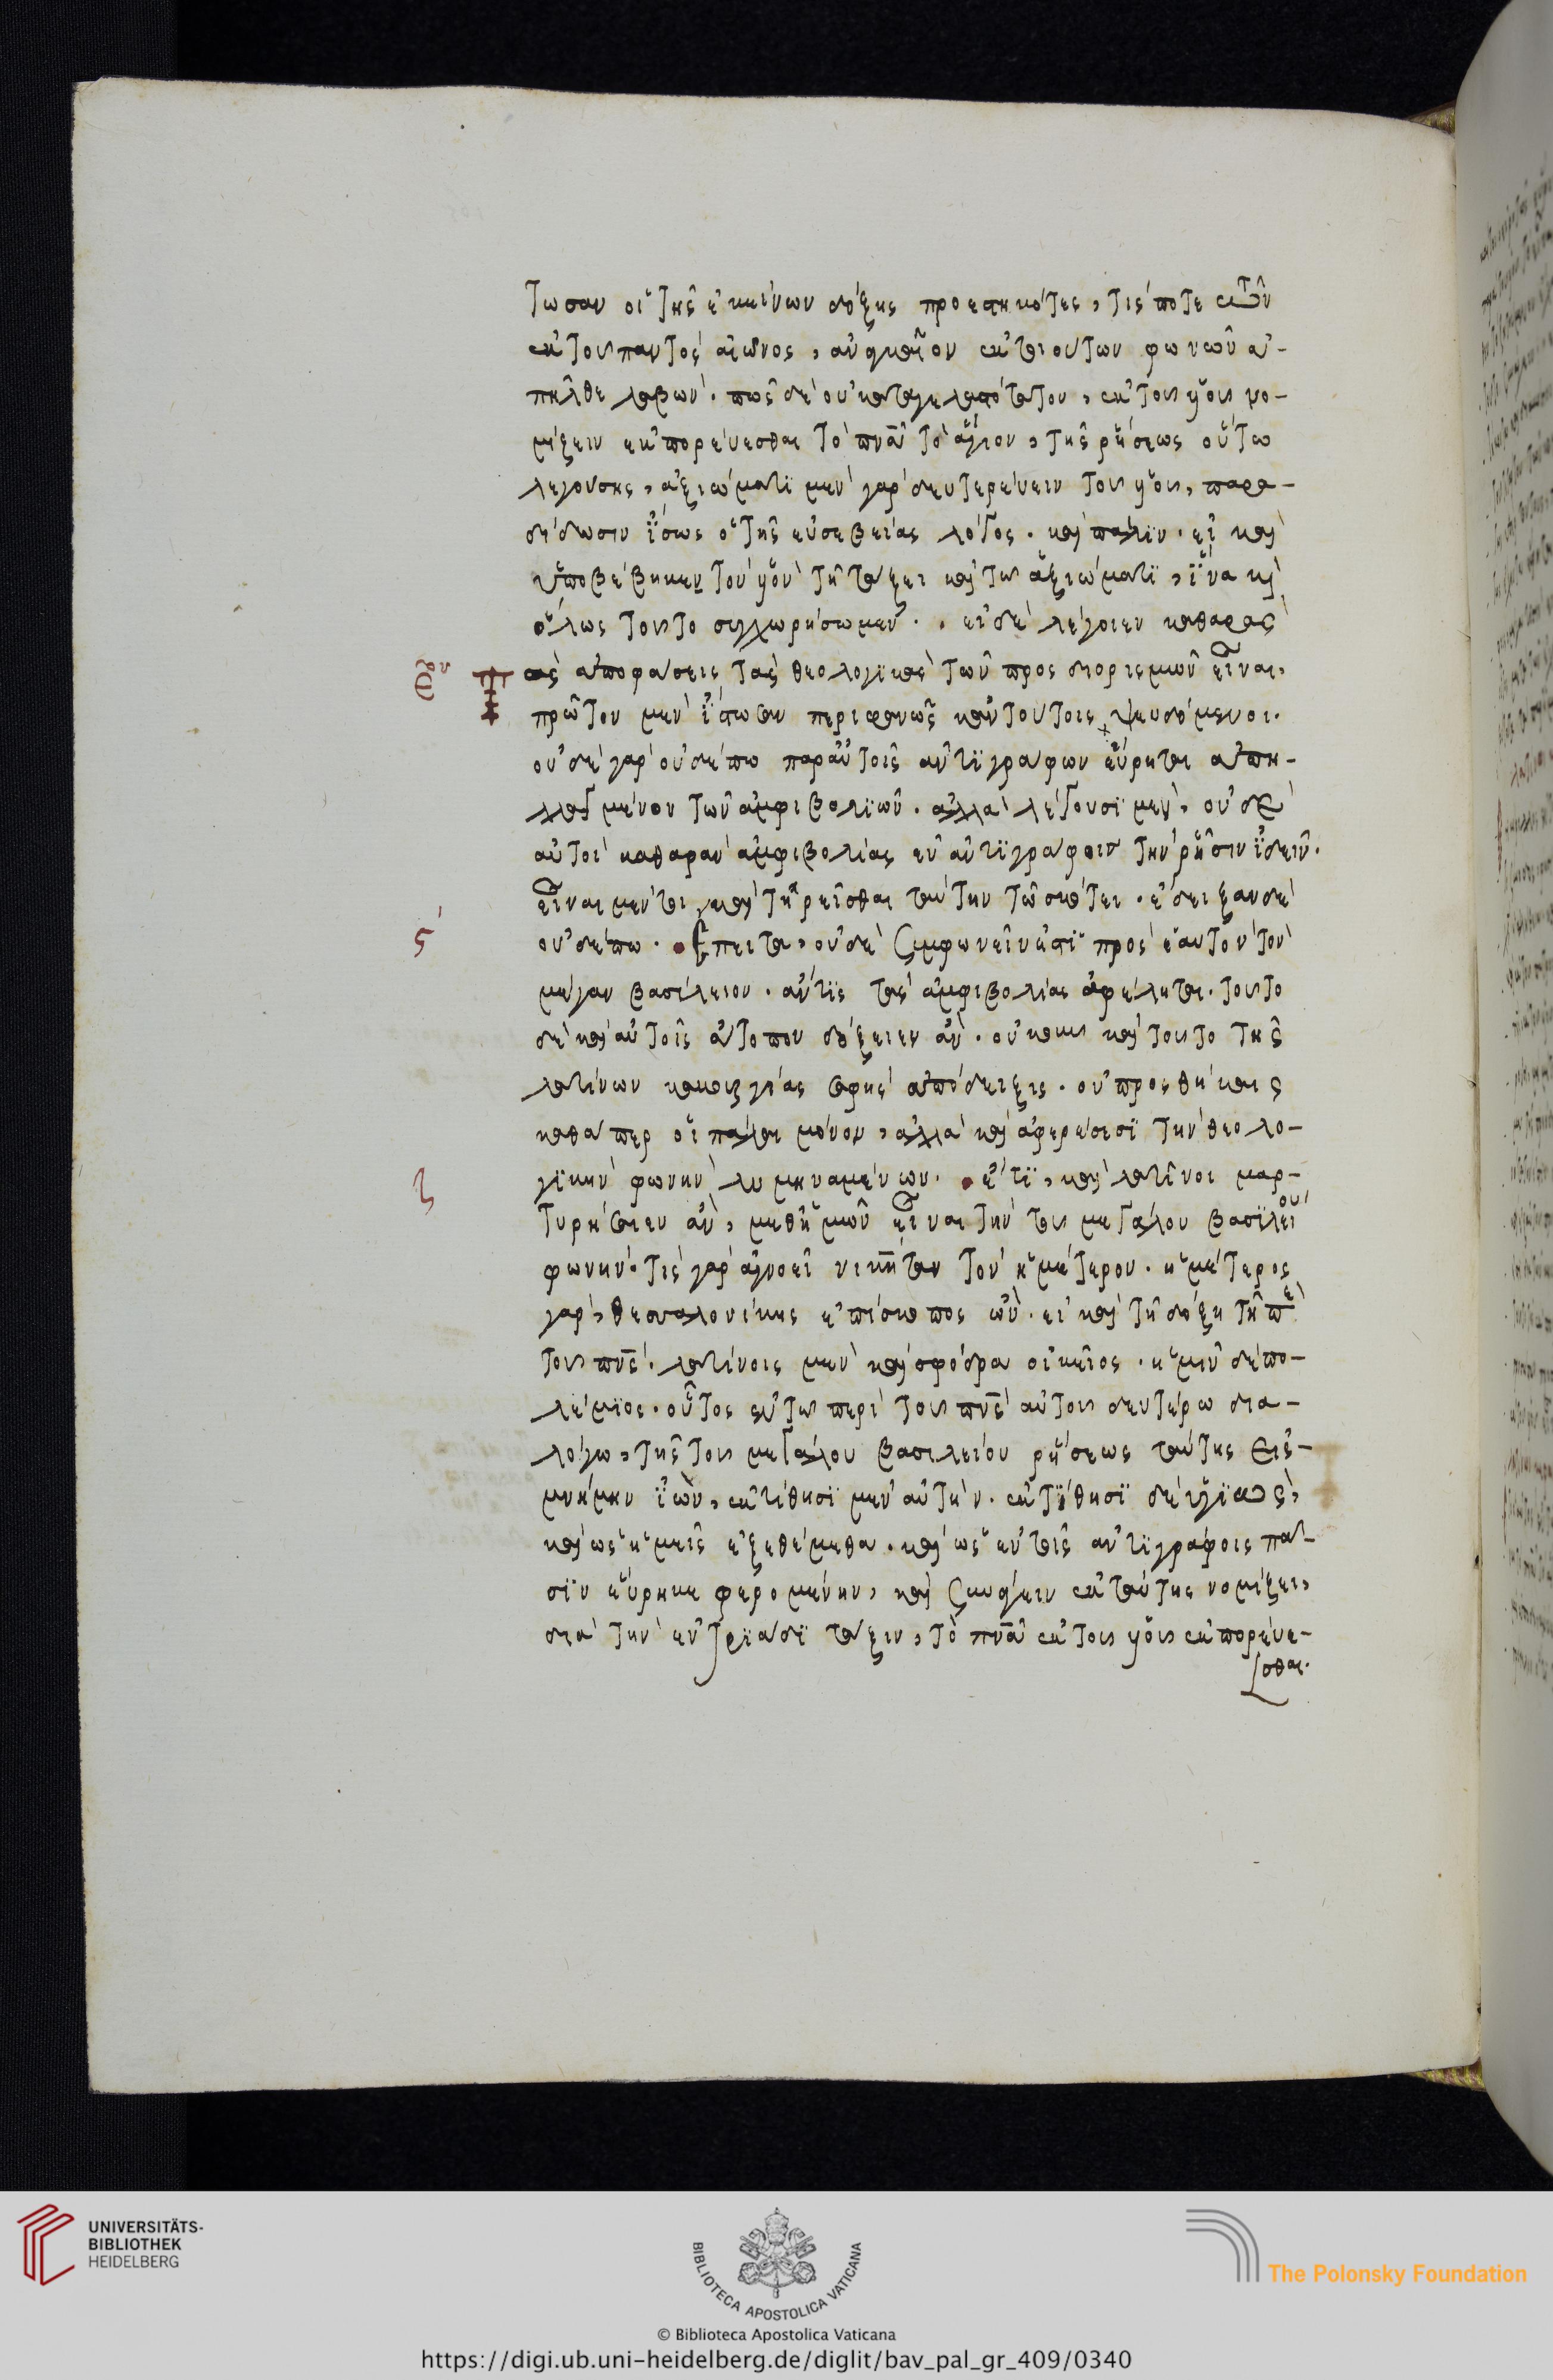 τωσαν οἱ τῆς ἐκείνων δόξης προεστηκότες, τίς ποτε αὐτῶν
ἐκ τοῦ παντὸς αἰῶνος, ἀναγκαῖον ἐκ τοιούτων φωνῶν ἀ-
πῆλθε λαβών. πῶς δὲ οὐ καταγελαστότατον, ἐκ τοῦ υἱοῦ νο-
μίζειν ἐκπορεύεσθαι τὸ πνᾶ τὸ ἅγιον, τῆς ῥήσεως οὕτω
λεγούσης, ἀξιώματι μὲν γὰρ δευτερεύειν τοῦ υἱοῦ, παρα-
δίδωσιν ἴσως ὁ τῆς εὐσεβείας λόγος. καὶ πάλιν. εἰ καὶ
ὑποβέβηκεν τὸν υἱὸν τῇ τάξει καὶ τῷ ἀξιώματι, ἵνα κὶ
ὅλως τοῦτο συγχωρήσωμεν. εἰ δὲ λέγοιεν καθαρὰς
τὰς ἀποφάσεις τὰς θεολογικὰς τῶν προσδιορισμῶν εἶναι,
πρῶτον μὲν ἴστωσαν περιφανῶς κἀν τούτοις ψευδόμενοι.
οὐδὲ γὰρ οὐδέπω παρ αὐτοῖς ἀντιγράφων εὕρηται ἀπη-
λλαγμένον τῶν ἀμφιβολιῶν. ἀλλὰ λέγουσι μὲν, οὐδ
αὐτοὶ καθαρὰν ἀμφιβολίας ἐν ἀντιγράφοις τὴν ῥῆσιν ἰδεῖν.
εἶναι μέντοι καὶ τηρεῖσθαι ταύτην τῷ σκότει. ἔδειξαν δὲ
ϛʹ οὐδέπω. Ἔπειτα, οὐδὲ συμφωνεῖν ἐστὶ πρὸς ἑαυτὸν τὸν
μέγαν βασίλειον. ἄν τις τὰς ἀμφιβολίας ἀφέληται. τοῦτο
δὲ καὶ αὐτοῖς ἄτοπον δόξειεν ἄν. οὐκοῦν καὶ τοῦτο τῆς
λατίνων κακουργίας σαφὴς ἀπόδειξις. οὐ προσθήκαις
καθάπερ οἱ πάλαι μόνον, ἀλλὰ καὶ ἀφαιρέσεσι τὴν θεολο-
ζ γικὴν φωνὴν λυμηναμένων. ἔτι, καὶ λατῖνοι μαρ-
τυρήσαιεν ἂν, μεθ ἡμῶν εἶναι τὴν τοῦ μεγάλου βασιλείου
φωνήν. τίς γὰρ ἀγνοεῖ νικήταν τὸν ἡμέτερον. ἡμέτερος
γὰρ, θεσσαλονίκης ἐπίσκοπος ὤν. εἰ καὶ τῇ δόξῃ τῇ πὲ
τοῦ πνς. λατίνοις μὲν καὶ σφόδρα οἰκεῖος. ἡμῖν δὲ πο-
λέμιος. οὗτος ἐν τῷ περὶ τοῦ πνς αὐτοῦ δευτέρω δια-
λόγω, τῆς τοῦ μεγάλου βασιλείου ῥήσεως ταύτης εἰς
μνήμην ἰὼν, ἐκτίθησι μὲν αὐτήν. ἐκτίθησι δὲ ὑγιῶς,
καὶ ὡς ἡμεῖς ἐξεθέμεθα. καὶ ὡς ἐν τοῖς ἀντιγράφοις πᾶ-
σιν εὕρηκε φερομένην, καὶ συνάγειν ἐκ ταύτης νομίζει,
διὰ τὴν ἐν τριάδι τάξιν, τὸ πνᾶ ἐκ τοῦ υἱοῦ ἐκπορεύε-
σθαι.
UNIVERSITÄTS-
BIBLIOTHEK
HEIDELBERG
BIBLIOTECA APOSTOLICA VATICANA
The Polonsky Foundation
© Biblioteca Apostolica Vaticana
https://digi.ub.uni-heidelberg.de/diglit/bav_pal_gr_409/0340